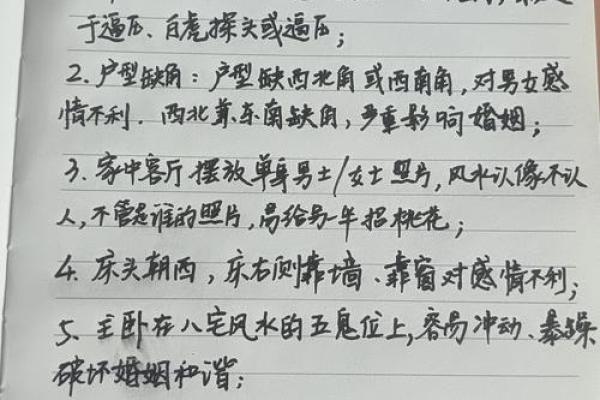 于逼压、白虎探头或逼压；
2.户型缺角：户型缺西北角或西南角，对男女感
情不利.西北兼东南缺角，严重影响婚姻；
3.家中客厅摆放单身男士/女士照片，风水认像不认
人，不管是谁的照片，易给另一半招桃花；
4.床头朝西，床右侧靠墙、靠窗对感情不利；
5.主卧在八宅风水的五鬼位上，容易冲动、暴躁
破坏婚姻和谐；